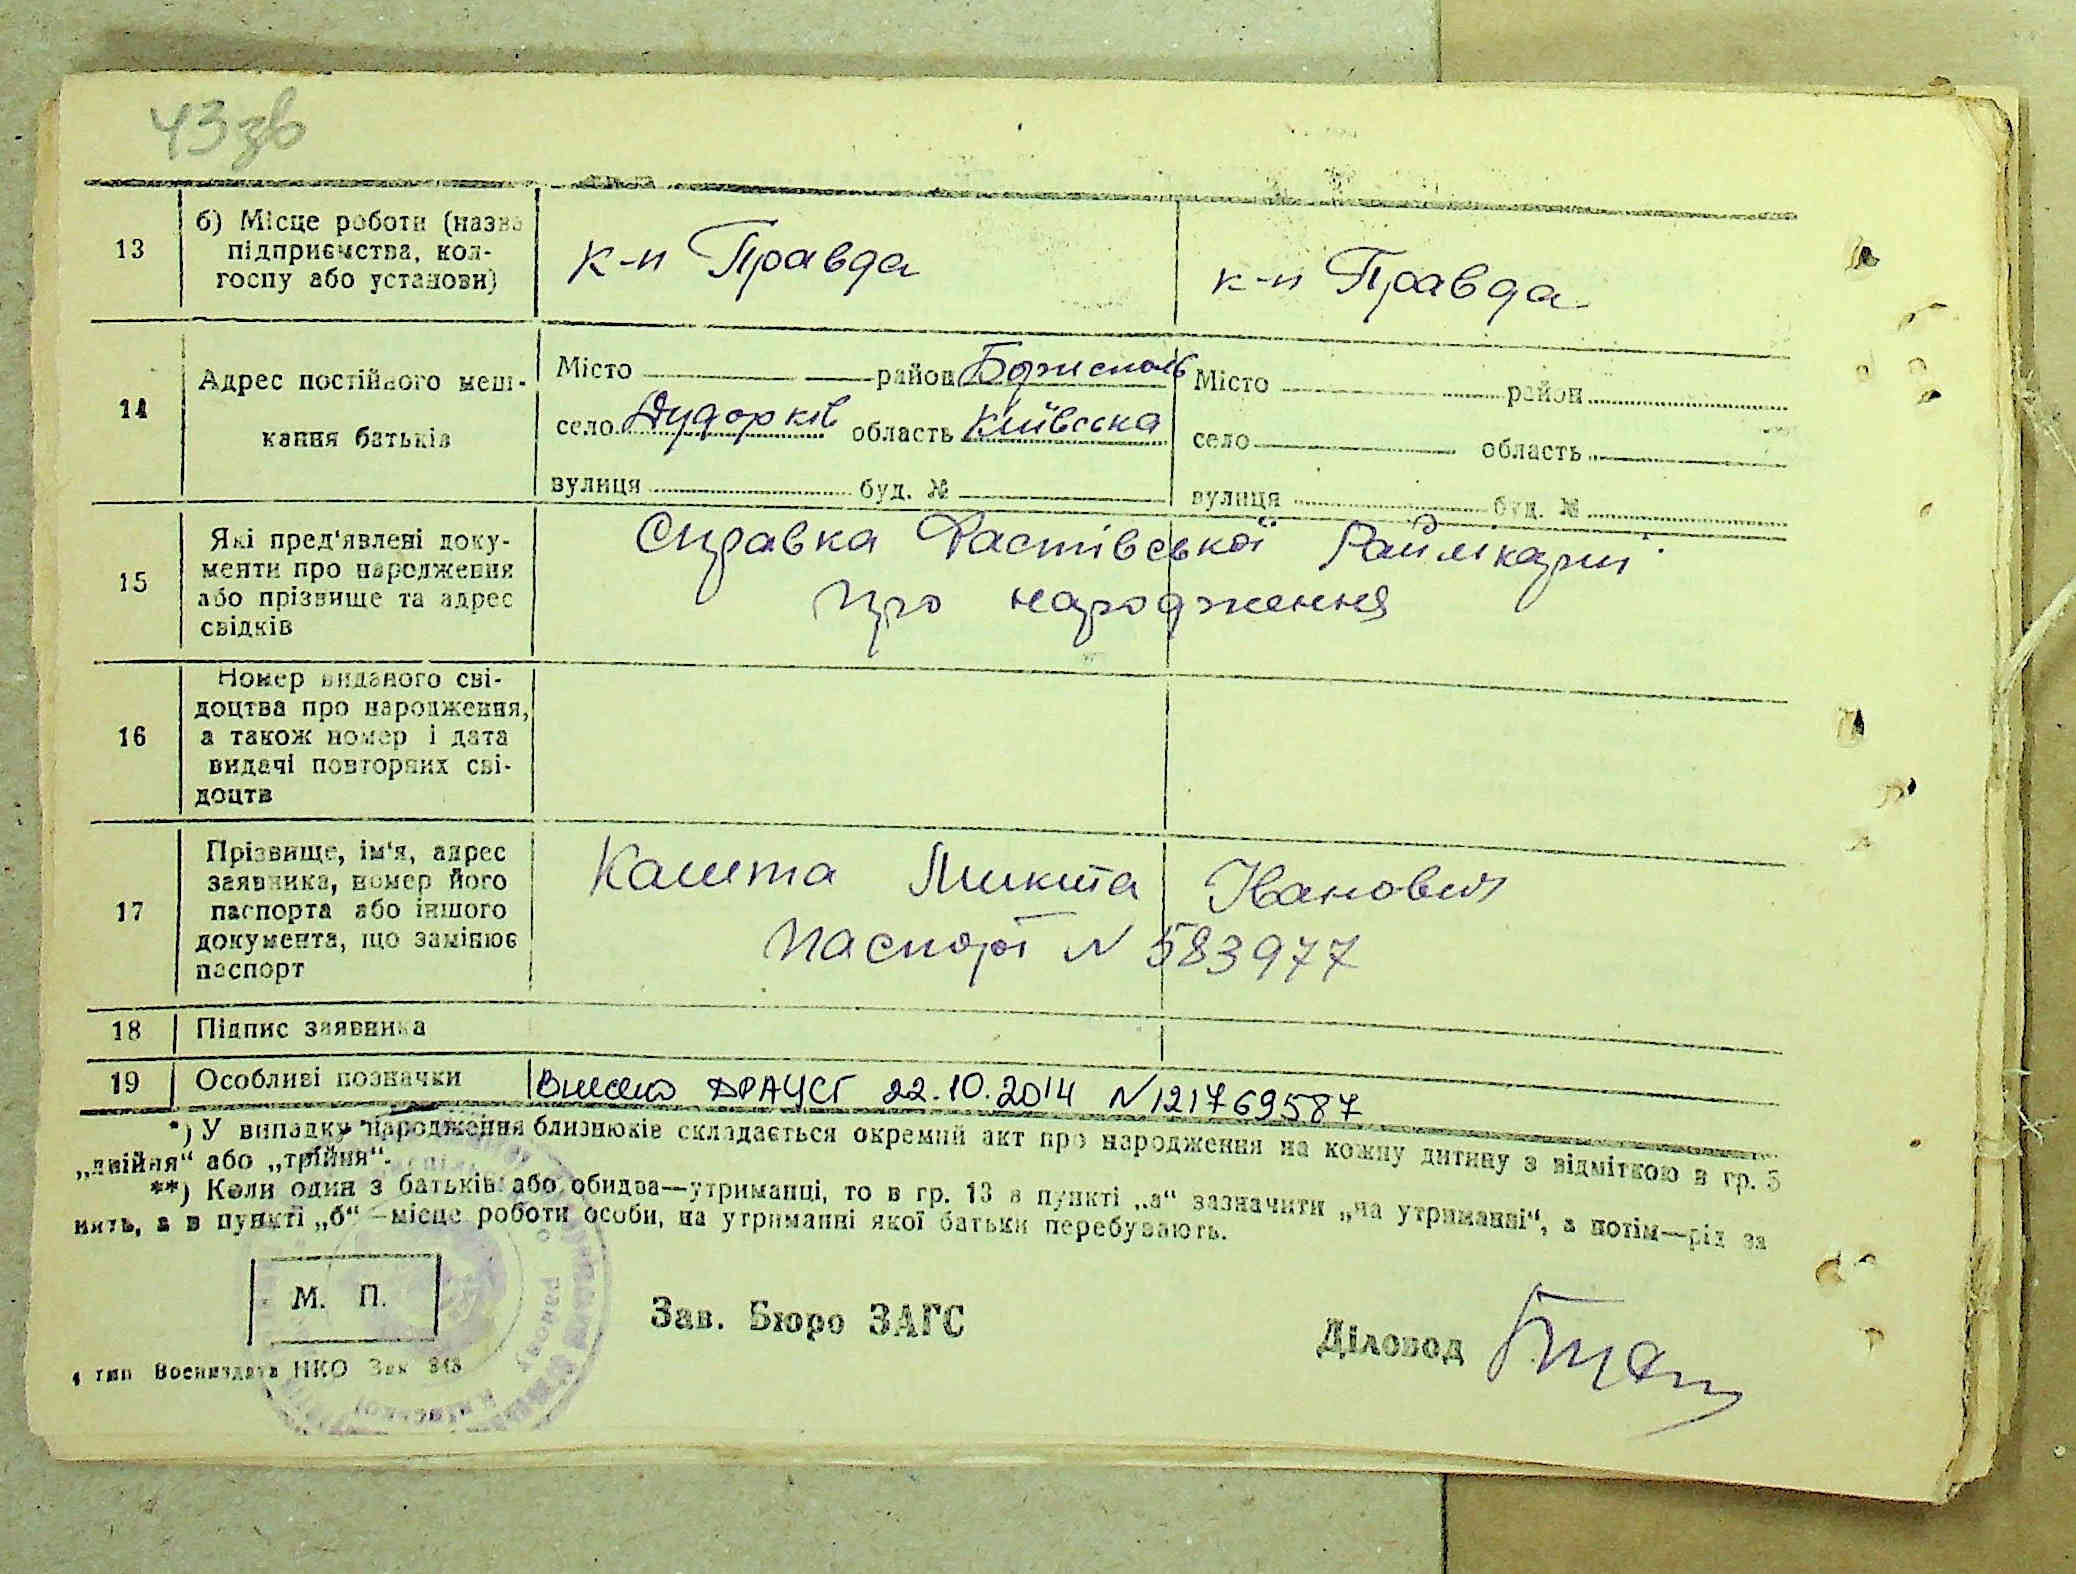 43зв
13 б) Місце роботи (назва к-п Правда к-п Правда
підприємства, кол-
госпу або установи)
14 Адрес постійного меш-
кання батьків
Місто район Бориспоів
село Дударків область Київська
вулиця буд. №
Місто район
село область
вулиця буд. №
15 Які пред'явлені доку-
менти про народження
або прізвище та адрес
свідків
Справка Фастівської Райлікарні
про народження
16 Номер виданого сві-
доцтва про народження,
а також номер і дата
видачі повторних сві-
доцтв
17 Прізвище, ім'я, адрес
заявника, номер його
паспорта або іншого
документа, що замінює
паспорт
Кашта Микита Іванович
Паспорт N 583977
18 Підпис заявника
19 Особливі позначки Внесено ДРАЦСГ 22.10.2014 N121769587
*) У випадку народження близнюків складається окремий акт про народження на кожну дитину з відміткою в гр. 5
„двійня“ або „трійня“.
**) Коли один з батьків або обидва—утриманці, то в гр. 13 в пункті „а“ зазначити „на утриманні“, а потім—рід за
нять, а в пункті „б“ —місце роботи особи, на утриманні якої батьки перебувають.
М. П.
Зав. Бюро ЗАГС
Діловод
4 тип Воениздата НКО Зак 848